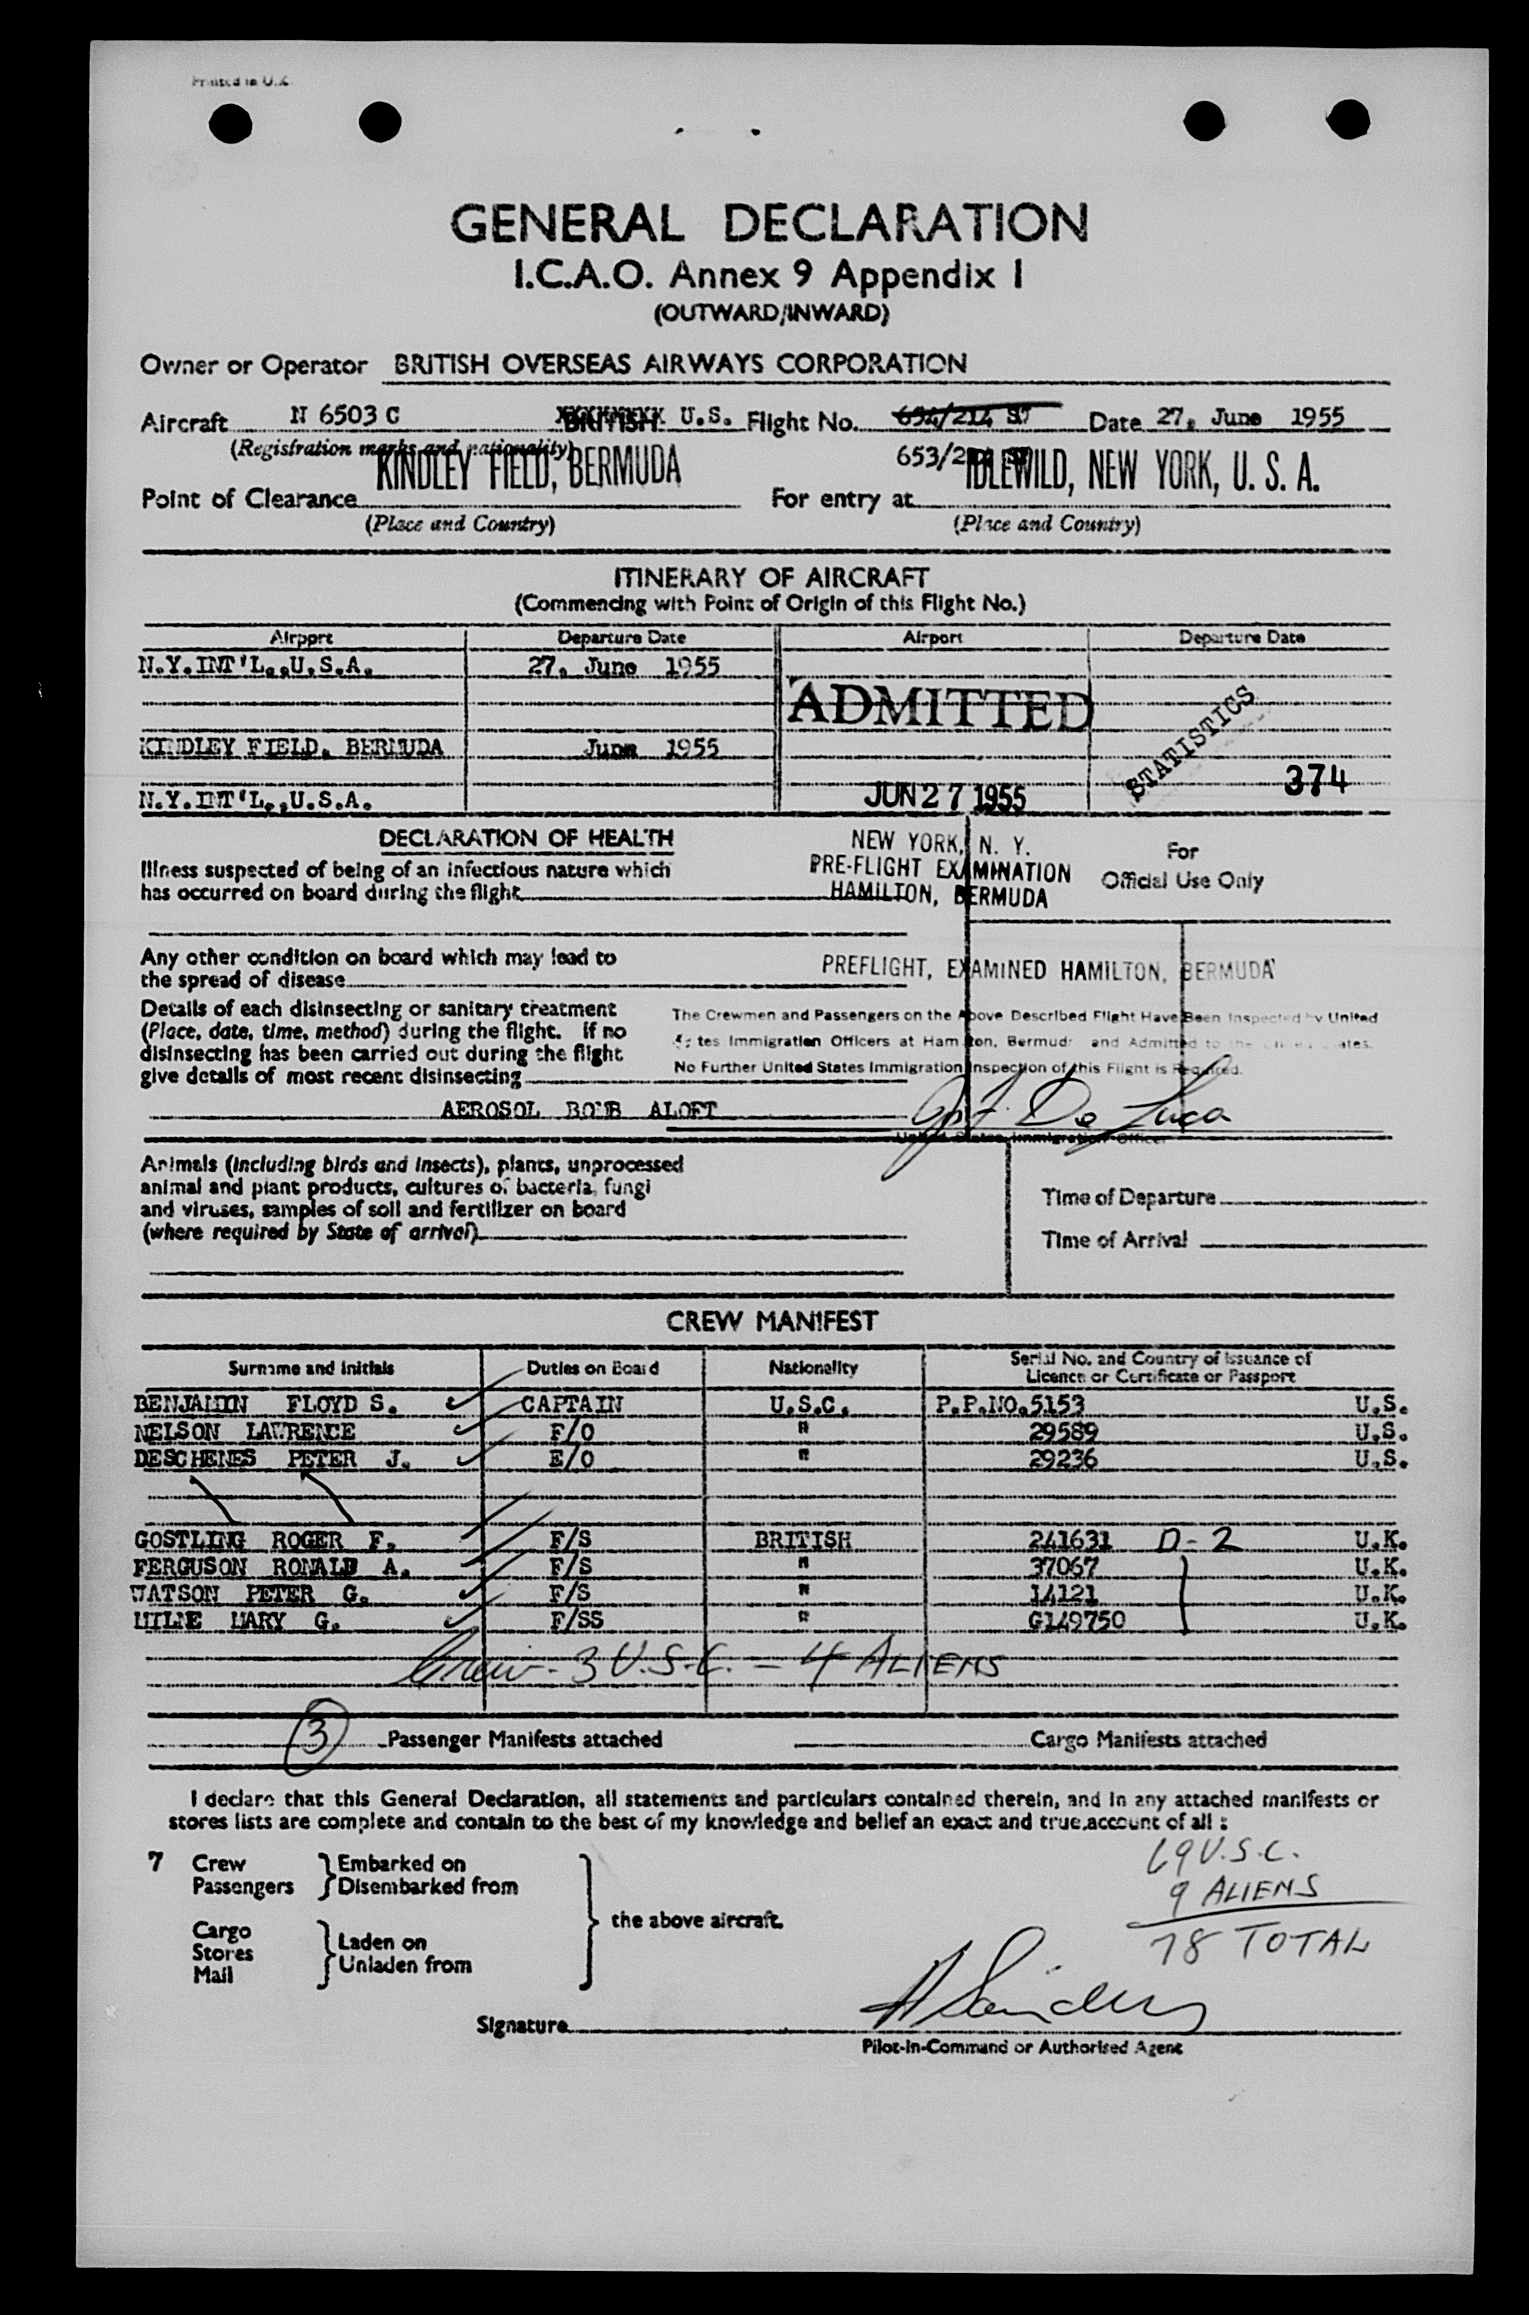 Printed in U.K.
GENERAL DECLARATION
I.C.A.O. Annex 9 Appendix I
(OUTWARD/INWARD)
Owner or Operator BRITISH OVERSEAS AIRWAYS CORPORATION
Aircraft N 6503 C BRITISH U.S. Flight No. 654/214 Date 27. June 1955
(Registration marks and nationality)
653/
Point of Clearance KINDLEY FIELD, BERMUDA For entry at IDLEWILD, NEW YORK, U. S. A.
(Place and Country) (Place and Country)
ITINERARY OF AIRCRAFT
(Commencing with Point of Origin of this Flight No.)
Airport Departure Date Airport Departure Date
N.Y.INT'L.,U.S.A. 27. June 1955
ADMITTED
STATISTICS
KINDLEY FIELD. BERMUDA June 1955
374
N.Y.INT'L.,U.S.A. JUN 27 1955
DECLARATION OF HEALTH
NEW YORK, N. Y.
PRE-FLIGHT EXAMINATION
HAMILTON, BERMUDA
For
Official Use Only
Illness suspected of being of an infectious nature which
has occurred on board during the flight
Any other condition on board which may lead to
the spread of disease
PREFLIGHT, EXAMINED HAMILTON, BERMUDA
Details of each disinsecting or sanitary treatment
(Place, date, time, method) during the flight. If no
disinsecting has been carried out during the flight
give details of most recent disinsecting
The Crewmen and Passengers on the Above Described Flight Have Been Inspected by United
States Immigration Officers at Hamilton, Bermuda and Admitted to the United States.
No Further United States Immigration Inspection of this Flight is Required.
AEROSOL BOMB ALOFT
De Luca
United States Immigration Officer
Animals (including birds and insects), plants, unprocessed
animal and plant products, cultures of bacteria, fungi
and viruses, samples of soil and fertilizer on board
(where required by State of arrival)
Time of Departure
Time of Arrival
CREW MANIFEST
Surname and initials Duties on Board Nationality Serial No. and Country of Issuance of
Licence or Certificate or Passport
BENJAMIN FLOYD S. CAPTAIN U.S.C. P.P.NO.5153 U.S.
NELSON LAWRENCE F/O " 29589 U.S.
DESCHENES PETER J. E/O " 29236 U.S.
GOSTLING ROGER F. F/S BRITISH 241631 D-2 U.K.
FERGUSON RONALD A. F/S " 37067 U.K.
WATSON PETER G. F/S " 14121 U.K.
MILNE MARY G. F/SS " G149750 U.K.
Crew - 3 U.S.C. - 4 ALIENS
3 Passenger Manifests attached Cargo Manifests attached
I declare that this General Declaration, all statements and particulars contained therein, and in any attached manifests or
stores lists are complete and contain to the best of my knowledge and belief an exact and true account of all :
7 Crew Embarked on
Passengers Disembarked from
the above aircraft.
Cargo Laden on
Stores Unladen from
Mail
69 U.S.C.
9 ALIENS
78 TOTAL
Signature
Pilot-in-Command or Authorised Agent